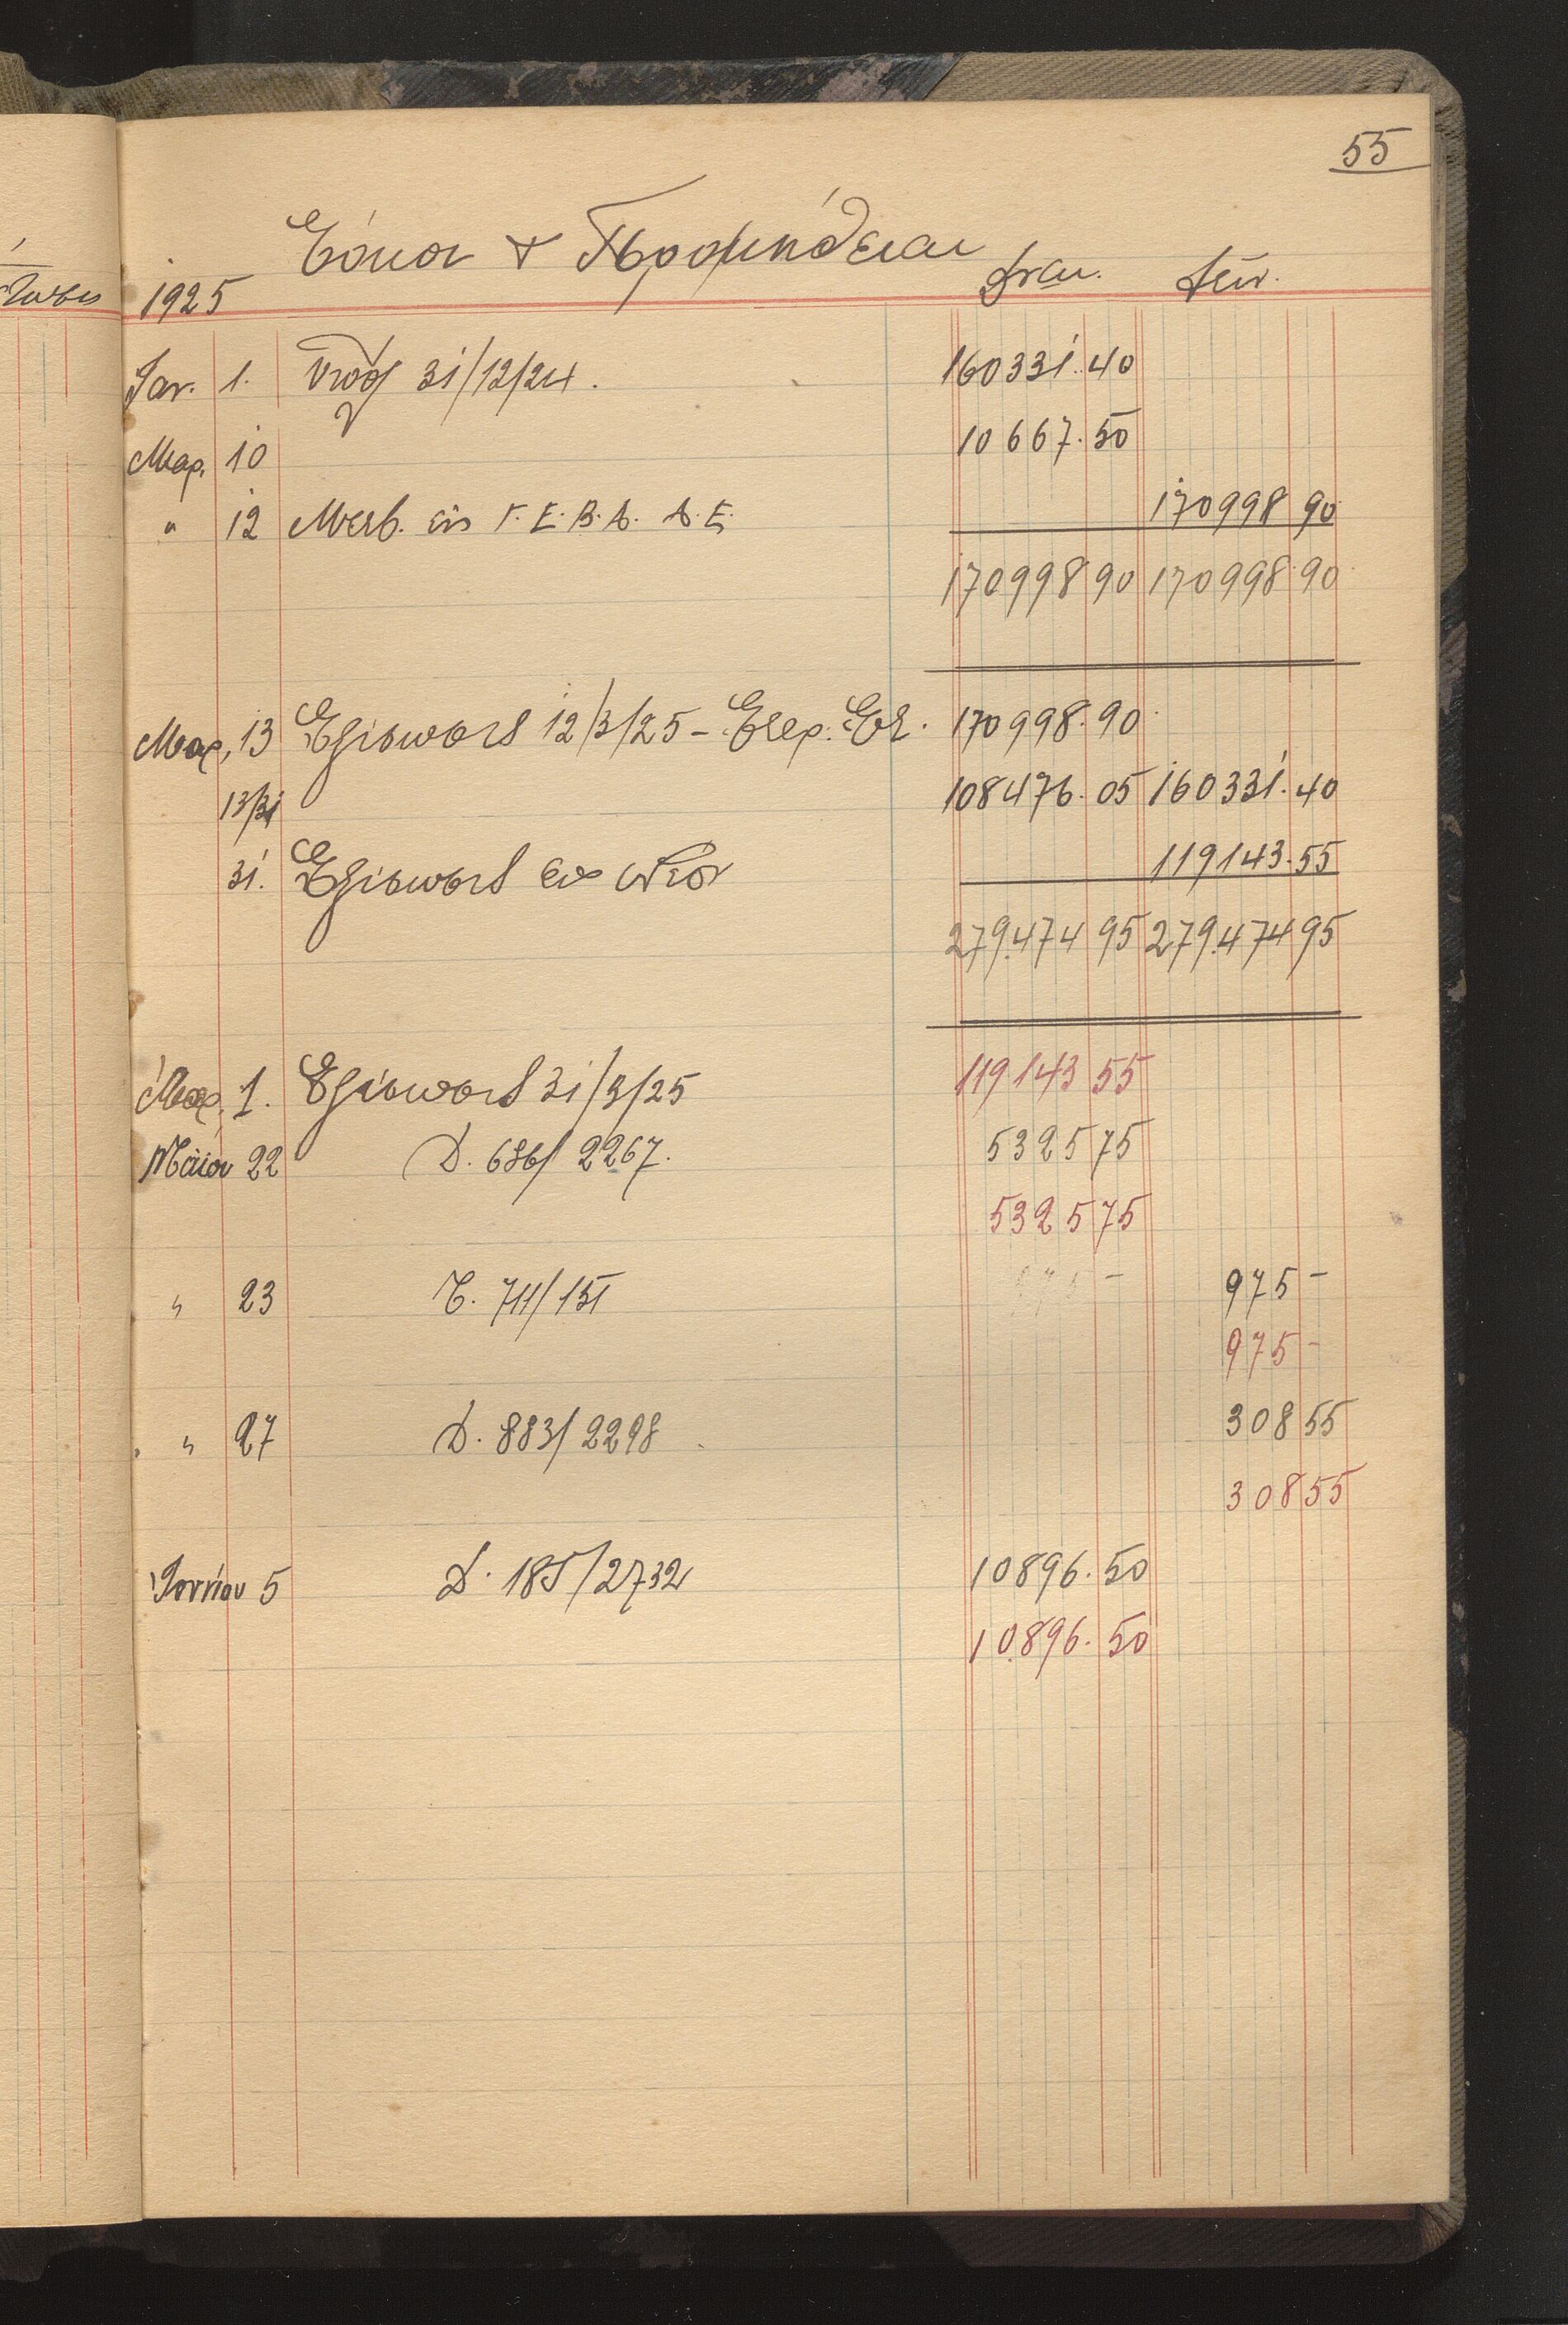 55
Τόκοι & Προμήθειαι
1925
Ιαν. 1. Υπόλ 31/12/24. 160331.40
Μαρ. 10 10667.50
" 12 Μεταφ. εις Γ.Ε.Β.Δ. Δ.Ε. 170998 90
170998 90 170998.90
Μαρ. 13 Εξίσωσις 12/3/25 - 170998.90
13/31 108476.05 160331.40
31. Εξίσωσις εκ Νέου 119143.55
279.474 95 279.474 95
1. Εξίσωσις 31/3/25 119143 55
Μαΐου 22 Δ. 686/2267. 5325 75
5325 75
" 23 711/151 975 -
975 -
" 27 Δ. 883/2298 308 55
308 55
Ιουνίου 5 Δ. 185/2732 10896.50
10896.50